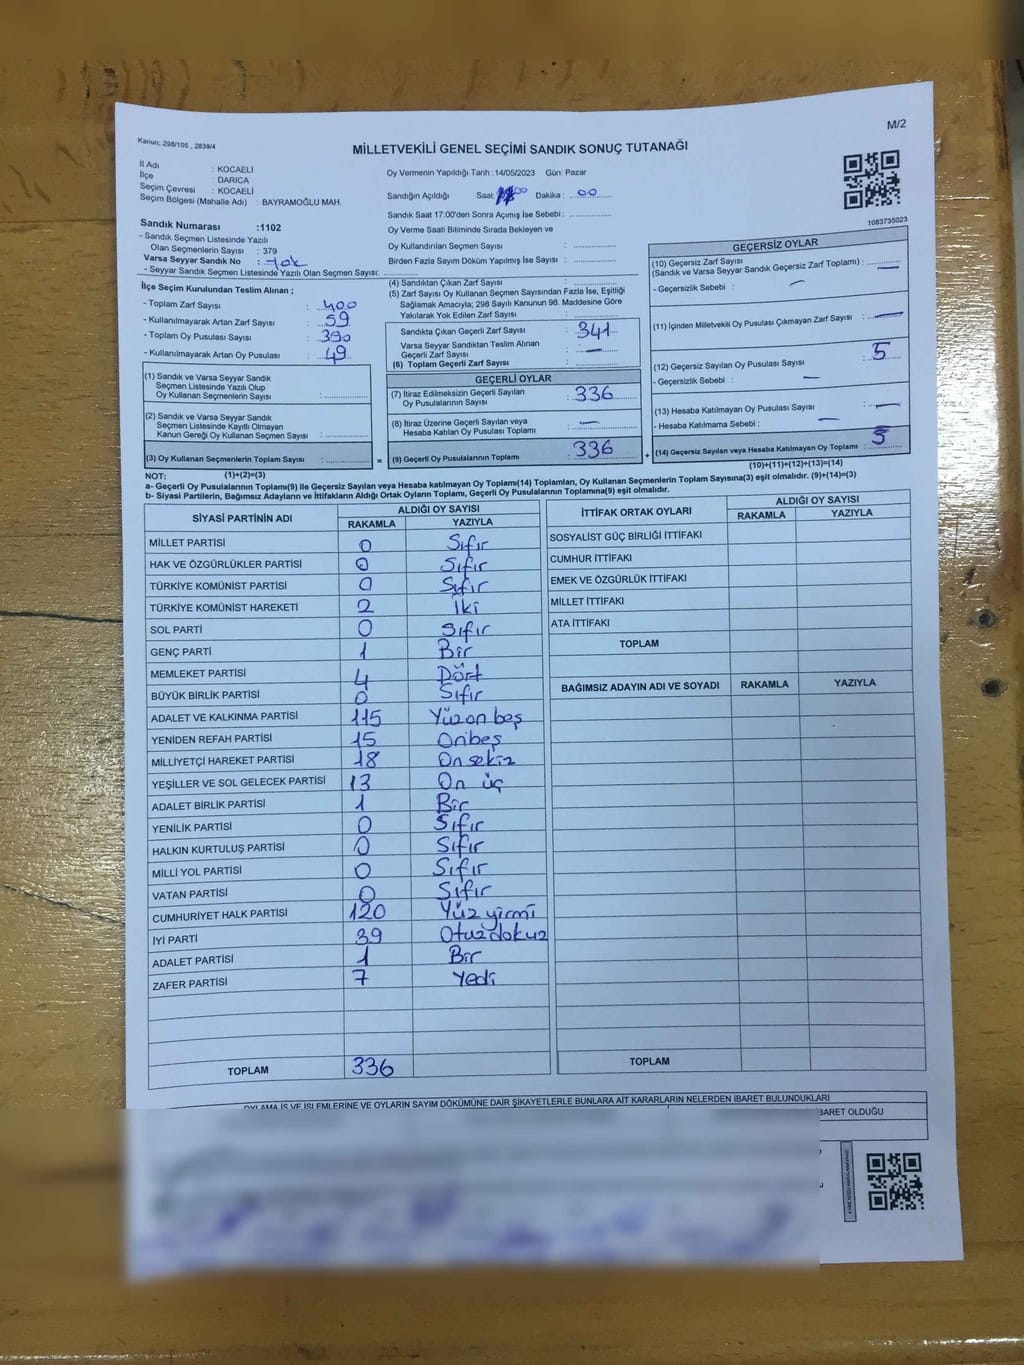 M/2
Kanun; 298/105 , 2839/4
MİLLETVEKİLİ GENEL SEÇİMİ SANDIK SONUÇ TUTANAĞI
İl Adı : KOCAELİ
İlçe : DARICA
Seçim Çevresi : KOCAELİ
Seçim Bölgesi (Mahalle Adı) : BAYRAMOĞLU MAH.
Sandık Numarası :1102
- Sandık Seçmen Listesinde Yazılı
Olan Seçmenlerin Sayısı : 379
Varsa Seyyar Sandık No : yok
- Seyyar Sandık Seçmen Listesinde Yazılı Olan Seçmen Sayısı:
Oy Vermenin Yapıldığı Tarih :14/05/2023 Gün: Pazar
Sandığın Açıldığı Saat Dakika : 00
Sandık Saat 17:00'den Sonra Açımış İse Sebebi :
Oy Verme Saati Bitiminde Sırada Bekleyen ve
Oy Kullandırılan Seçmen Sayısı :
Birden Fazla Sayım Döküm Yapılmış İse Sayısı :
1083735023
İlçe Seçim Kurulundan Teslim Alınan ;
- Toplam Zarf Sayısı : 400
- Kullanılmayarak Artan Zarf Sayısı : 59
- Toplam Oy Pusulası Sayısı : 390
- Kullanılmayarak Artan Oy Pusulası : 49
(1) Sandık ve Varsa Seyyar Sandık
Seçmen Listesinde Yazılı Olup
Oy Kullanan Seçmen Sayısı :
(2) Sandık ve Varsa Seyyar Sandık
Seçmen Listesinde Kayıtlı Olmayan
Kanun Gereği Oy Kullanan Seçmen Sayısı :
(3) Oy Kullanan Seçmenlerin Toplam Sayısı :
(1)+(2)=(3)
(4) Sandıktan Çıkan Zarf Sayısı :
(5) Zarf Sayısı Oy Kullanan Seçmen Sayısından Fazla İse, Eşitliği
Sağlamak Amacıyla; 298 Sayılı Kanunun 98. Maddesine Göre
Yakılarak Yok Edilen Zarf Sayısı :
Sandıkta Çıkan Geçerli Zarf Sayısı : 341
Varsa Seyyar Sandıktan Teslim Alınan
Geçerli Zarf Sayısı : —
(6) Toplam Geçerli Zarf Sayısı :
GEÇERLİ OYLAR
(7) İtiraz Edilmeksizin Geçerli Sayılan
Oy Pusulalarının Sayısı : 336
(8) İtiraz Üzerine Geçerli Sayılan veya
Hesaba Katılan Oy Pusulası Toplamı : —
= (9) Geçerli Oy Pusulalarının Toplamı : 336 +
GEÇERSİZ OYLAR
(10) Geçersiz Zarf Sayısı
(Sandık ve Varsa Seyyar Sandık Geçersiz Zarf Toplamı) : —
- Geçersizlik Sebebi : —
(11) İçinden Milletvekili Oy Pusulası Çıkmayan Zarf Sayısı : —
(12) Geçersiz Sayılan Oy Pusulası Sayısı : 5
- Geçersizlik Sebebi : —
(13) Hesaba Katılmayan Oy Pusulası Sayısı : —
- Hesaba Katılmama Sebebi : —
(14) Geçersiz Sayılan veya Hesaba Katılmayan Oy Toplamı : 5
(10)+(11)+(12)+(13)=(14)
NOT:
a- Geçerli Oy Pusulalarının Toplamı(9) ile Geçersiz Sayılan veya Hesaba katılmayan Oy Toplamı(14) Toplamları, Oy Kullanan Seçmenlerin Toplam Sayısına(3) eşit olmalıdır. (9)+(14)=(3)
b- Siyasi Partilerin, Bağımsız Adayların ve İttifakların Aldığı Ortak Oyların Toplamı, Geçerli Oy Pusulalarının Toplamına(9) eşit olmalıdır.
SİYASİ PARTİNİN ADI ALDIĞI OY SAYISI
RAKAMLA YAZIYLA
MİLLET PARTİSİ 0 Sıfır
HAK VE ÖZGÜRLÜKLER PARTİSİ 0 Sıfır
TÜRKİYE KOMÜNİST PARTİSİ 0 Sıfır
TÜRKİYE KOMÜNİST HAREKETİ 2 İki
SOL PARTİ 0 Sıfır
GENÇ PARTİ 1 Bir
MEMLEKET PARTİSİ 4 Dört
BÜYÜK BİRLİK PARTİSİ 0 Sıfır
ADALET VE KALKINMA PARTİSİ 115 Yüzonbeş
YENİDEN REFAH PARTİSİ 15 Onbeş
MİLLİYETÇİ HAREKET PARTİSİ 18 Onsekiz
YEŞİLLER VE SOL GELECEK PARTİSİ 13 On üç
ADALET BİRLİK PARTİSİ 1 Bir
YENİLİK PARTİSİ 0 Sıfır
HALKIN KURTULUŞ PARTİSİ 0 Sıfır
MİLLİ YOL PARTİSİ 0 Sıfır
VATAN PARTİSİ 0 Sıfır
CUMHURİYET HALK PARTİSİ 120 Yüz yirmi
İYİ PARTİ 39 Otuzdokuz
ADALET PARTİSİ 1 Bir
ZAFER PARTİSİ 7 Yedi
TOPLAM 336
İTTİFAK ORTAK OYLARI ALDIĞI OY SAYISI
RAKAMLA YAZIYLA
SOSYALİST GÜÇ BİRLİĞİ İTTİFAKI
CUMHUR İTTİFAKI
EMEK VE ÖZGÜRLÜK İTTİFAKI
MİLLET İTTİFAKI
ATA İTTİFAKI
TOPLAM
BAĞIMSIZ ADAYIN ADI VE SOYADI RAKAMLA YAZIYLA
TOPLAM
OYLAMA İŞ VE İŞLEMLERİNE VE OYLARIN SAYIM DÖKÜMÜNE DAİR ŞİKAYETLERLE BUNLARA AİT KARARLARIN NELERDEN İBARET BULUNDUKLARI
BARET OLDUĞU